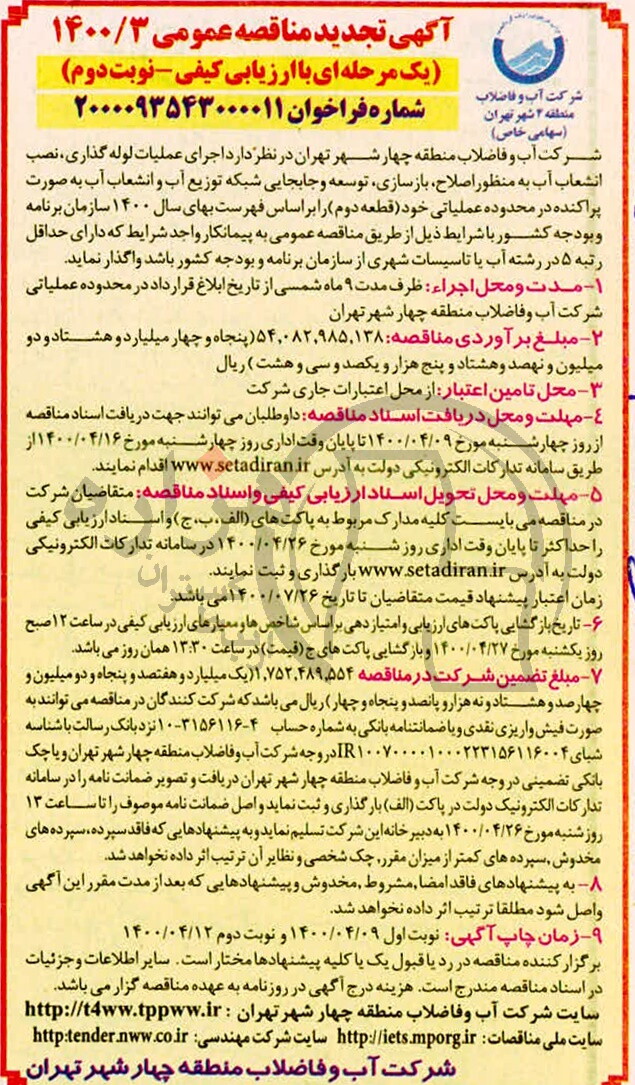 آگهی تجدید مناقصه عمومی ۱۴۰۰/۳
(یک مرحله ای با ارزیابی کیفی - نوبت دوم)
شماره فراخوان ۲۰۰۰۰۹۳۵۴۳۰۰۰۰۱۱
شرکت آب و فاضلاب
منطقه ۴ شهر تهران
(سهامی خاص)
شرکت آب و فاضلاب منطقه چهار شهر تهران در نظر دارد اجرای عملیات لوله گذاری، نصب
انشعاب آب به منظور اصلاح، بازسازی، توسعه و جابجایی شبکه توزیع آب و انشعاب آب به صورت
پراکنده در محدوده عملیاتی خود (قطعه دوم) را براساس فهرست بهای سال ۱۴۰۰ سازمان برنامه
و بودجه کشور با شرایط ذیل از طریق مناقصه عمومی به پیمانکار واجد شرایط که دارای حداقل
رتبه ۵ در رشته آب یا تاسیسات شهری از سازمان برنامه و بودجه کشور باشد واگذار نماید.
۱- مدت و محل اجراء: ظرف مدت ۹ ماه شمسی از تاریخ ابلاغ قرارداد در محدوده عملیاتی
شرکت آب و فاضلاب منطقه چهار شهر تهران
۲- مبلغ برآوردی مناقصه: ۵۴,۰۸۲,۹۸۵,۱۳۸ (پنجاه و چهار میلیارد و هشتاد و دو
میلیون و نهصد و هشتاد و پنج هزار و یکصد و سی و هشت) ریال
۳- محل تامین اعتبار: از محل اعتبارات جاری شرکت
۴- مهلت و محل دریافت اسناد مناقصه: داوطلبان می توانند جهت دریافت اسناد مناقصه
از روز چهارشنبه مورخ ۱۴۰۰/۰۴/۰۹ تا پایان وقت اداری روز چهارشنبه مورخ ۱۴۰۰/۰۴/۱۶ از
طریق سامانه تدارکات الکترونیکی دولت به آدرس www.setadiran.ir اقدام نمایند.
۵- مهلت و محل تحویل اسناد ارزیابی کیفی و اسناد مناقصه: متقاضیان شرکت
در مناقصه می بایست کلیه مدارک مربوط به پاکت های (الف، ب، ج) و اسناد ارزیابی کیفی
را حداکثر تا پایان وقت اداری روز شنبه مورخ ۱۴۰۰/۰۴/۲۶ در سامانه تدارکات الکترونیکی
دولت به آدرس www.setadiran.ir بارگذاری و ثبت نمایند.
زمان اعتبار پیشنهاد قیمت متقاضیان تا تاریخ ۱۴۰۰/۰۷/۲۶ می باشد.
۶- تاریخ بازگشایی پاکت های ارزیابی و امتیازدهی براساس شاخص ها و معیارهای ارزیابی کیفی در ساعت ۱۲ صبح
روز یکشنبه مورخ ۱۴۰۰/۰۴/۲۷ و بازگشایی پاکت های ج (قیمت) در ساعت ۱۳:۳۰ همان روز می باشد.
۷- مبلغ تضمین شرکت در مناقصه ۱,۷۵۲,۴۸۹,۵۵۴ (یک میلیارد و هفتصد و پنجاه و دو میلیون و
چهارصد و هشتاد و نه هزار و پانصد و پنجاه و چهار) ریال می باشد که شرکت کنندگان در مناقصه می توانند به
صورت فیش واریزی نقدی و یا ضمانتنامه بانکی به شماره حساب ۴-۳۱۵۶۱۱۶-۱۰ نزد بانک رسالت با شناسه
شبای IR۱۰۰۷۰۰۰۰۱۰۰۰۲۲۳۱۵۶۱۱۶۰۰۴ در وجه شرکت آب و فاضلاب منطقه چهار شهر تهران و یا چک
بانکی تضمینی در وجه شرکت آب و فاضلاب منطقه چهار شهر تهران دریافت و تصویر ضمانت نامه را در سامانه
تدارکات الکترونیک دولت در پاکت (الف) بارگذاری و ثبت نماید و اصل ضمانت نامه موصوف را تا ساعت ۱۳
روز شنبه مورخ ۱۴۰۰/۰۴/۲۶ به دبیرخانه این شرکت تسلیم نماید و به پیشنهادهایی که فاقد سپرده، سپرده های
مخدوش، سپرده های کمتر از میزان مقرر، چک شخصی و نظایر آن ترتیب اثر داده نخواهد شد.
۸- به پیشنهادهای فاقد امضا، مشروط، مخدوش و پیشنهادهایی که بعد از مدت مقرر این آگهی
واصل شود مطلقا ترتیب اثر داده نخواهد شد.
۹- زمان چاپ آگهی: نوبت اول ۱۴۰۰/۰۴/۰۹ و نوبت دوم ۱۴۰۰/۰۴/۱۲
برگزار کننده مناقصه در رد یا قبول یک یا کلیه پیشنهادها مختار است. سایر اطلاعات و جزئیات
در اسناد مناقصه مندرج است. هزینه درج آگهی در روزنامه به عهده مناقصه گزار می باشد.
سایت شرکت آب وفاضلاب منطقه چهار شهر تهران : http://t4ww.tppww.ir
سایت ملی مناقصات: http://iets.mporg.ir سایت شرکت مهندسی: http:tender.nww.co.ir
شرکت آب و فاضلاب منطقه چهار شهر تهران